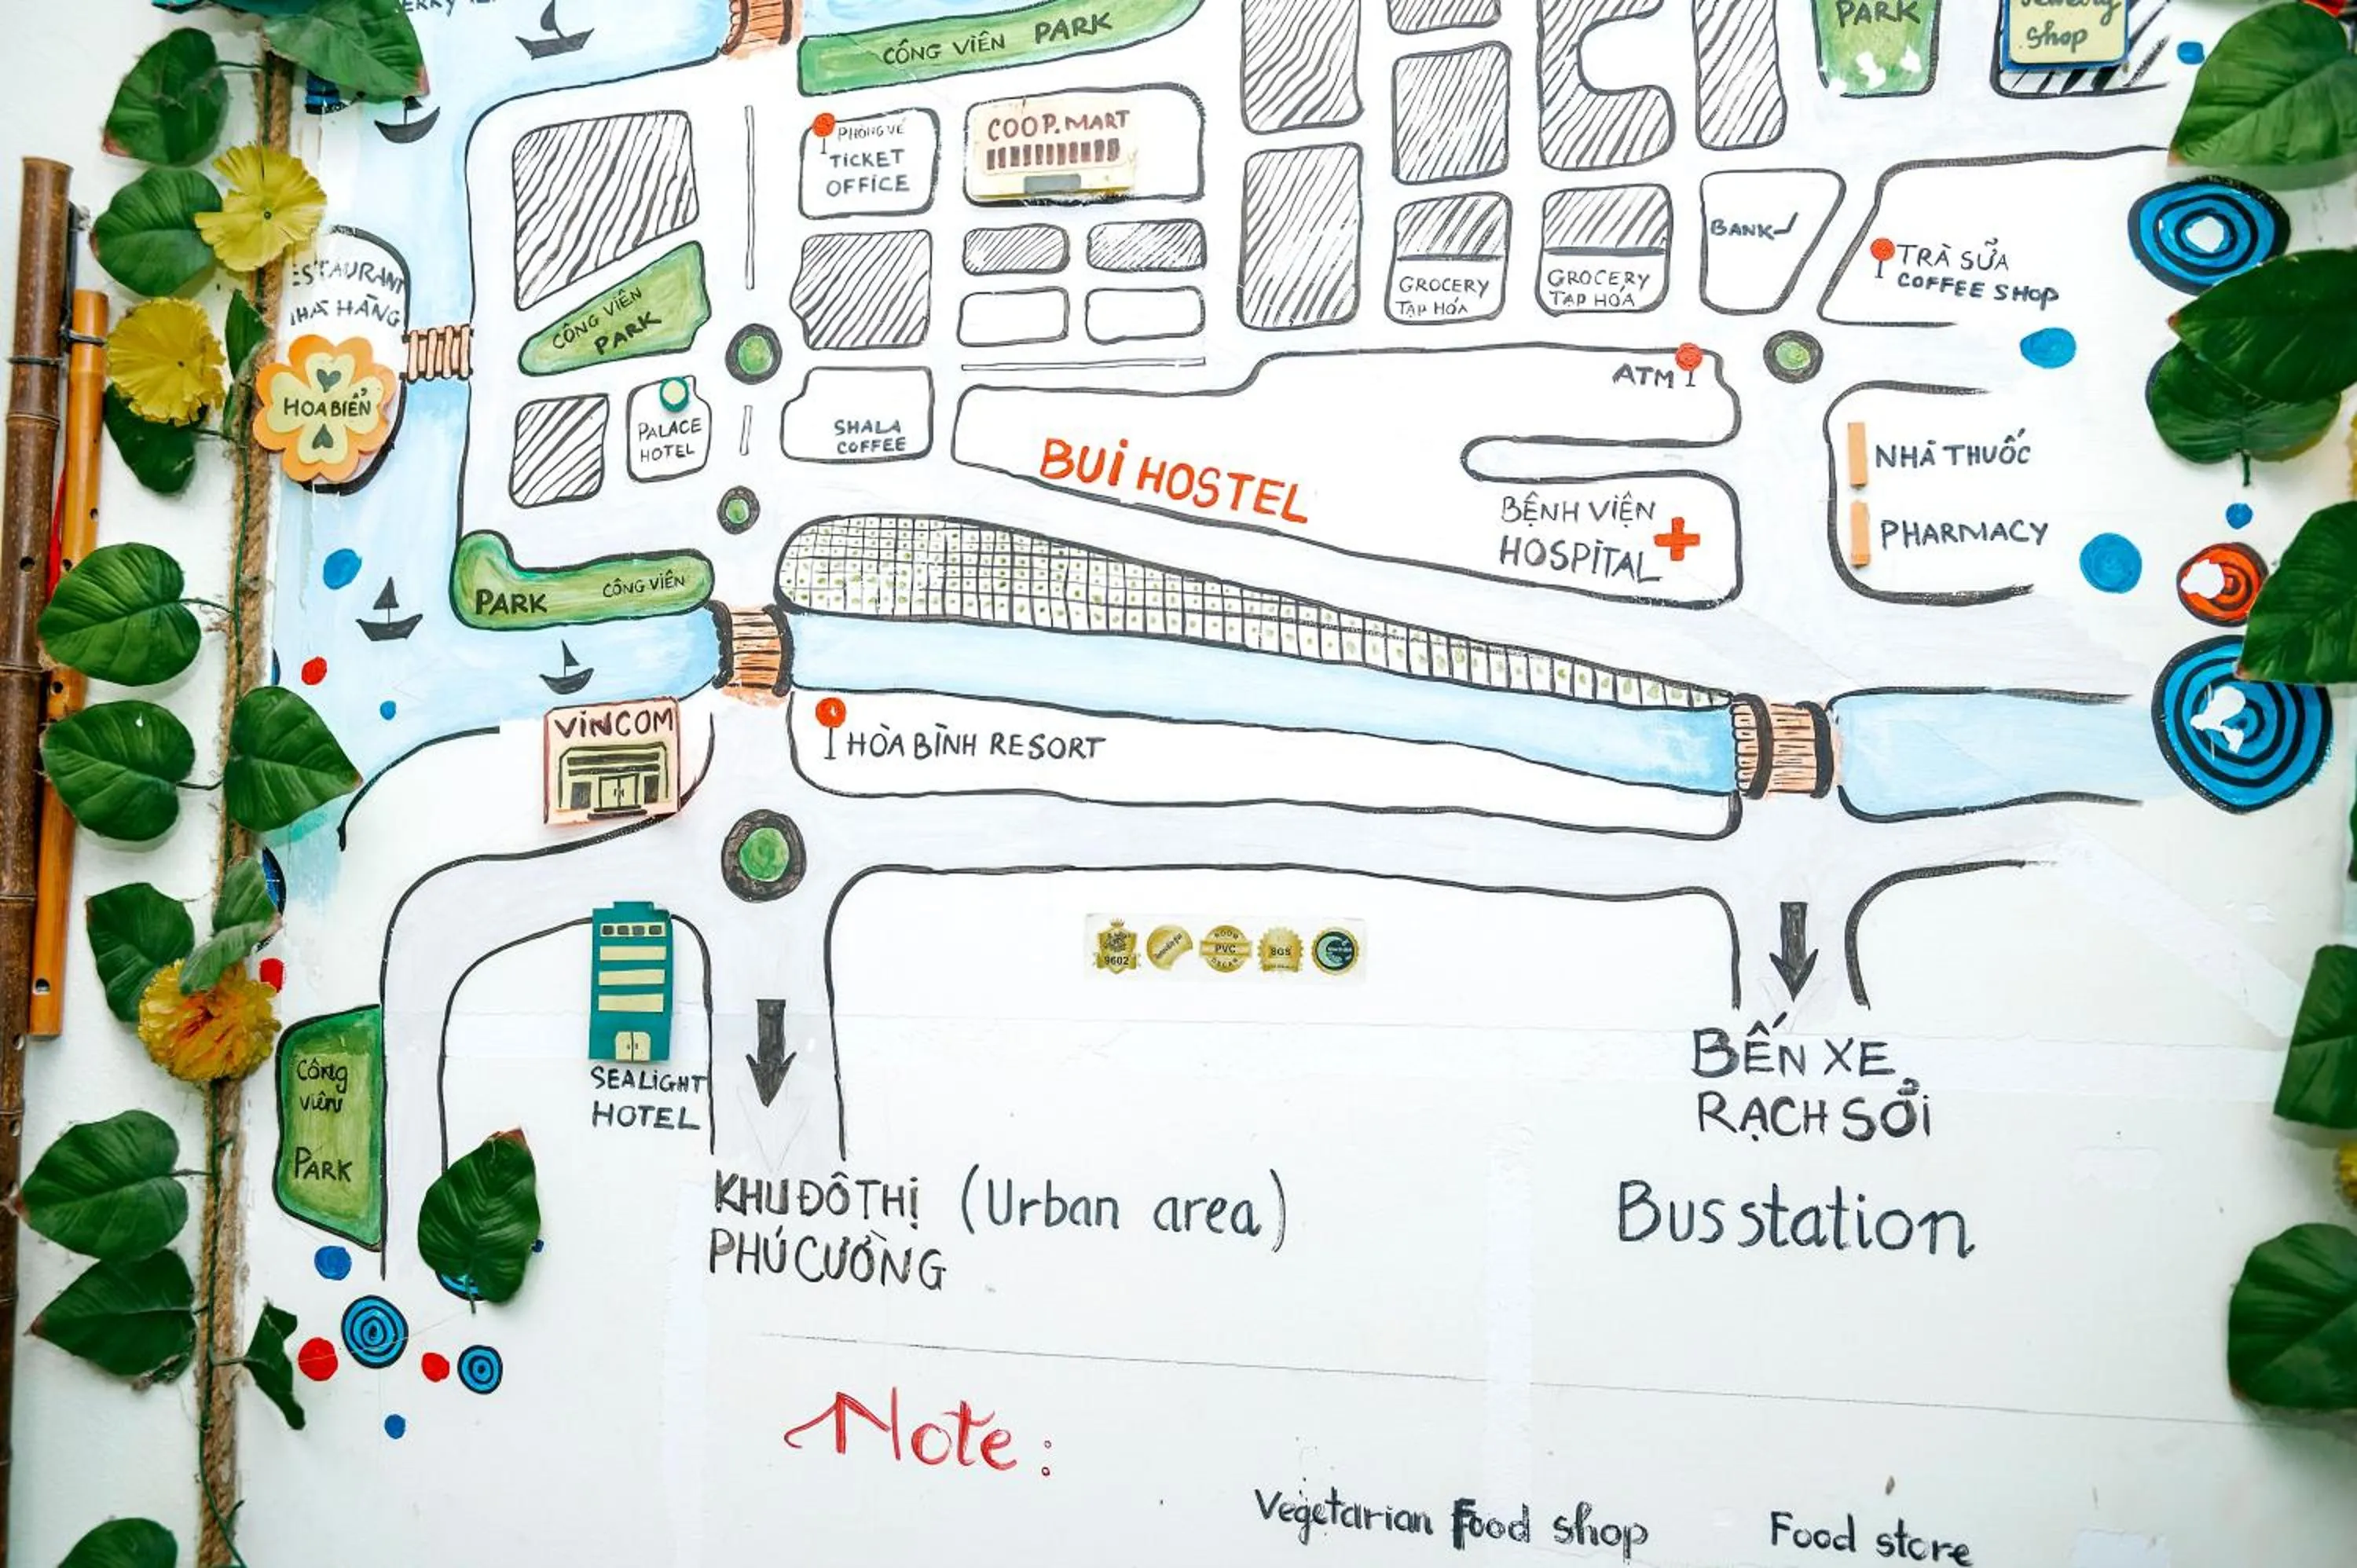 CÔNG VIÊN PARK
PARK
Jewelry
Shop
PHÒNG VÉ
TICKET
OFFICE
COOP.MART
NHÀ HÀNG
HOA BIỂN
CÔNG VIÊN
PARK
PALACE
HOTEL
SHALA
COFFEE
GROCERY
TẠP HÓA
GROCERY
TẠP HÓA
BANK
TRÀ SỮA
COFFEE SHOP
ATM
BUI HOSTEL
BỆNH VIỆN
HOSPITAL
NHÀ THUỐC
PHARMACY
PARK CÔNG VIÊN
VINCOM
HÒA BÌNH RESORT
9602
PVC
SGS
SEALIGHT
HOTEL
Công
viên
PARK
BẾN XE
RẠCH SỎI
Bus station
KHU ĐÔ THỊ (Urban area)
PHÚ CƯỜNG
Note:
Vegetarian Food shop Food store